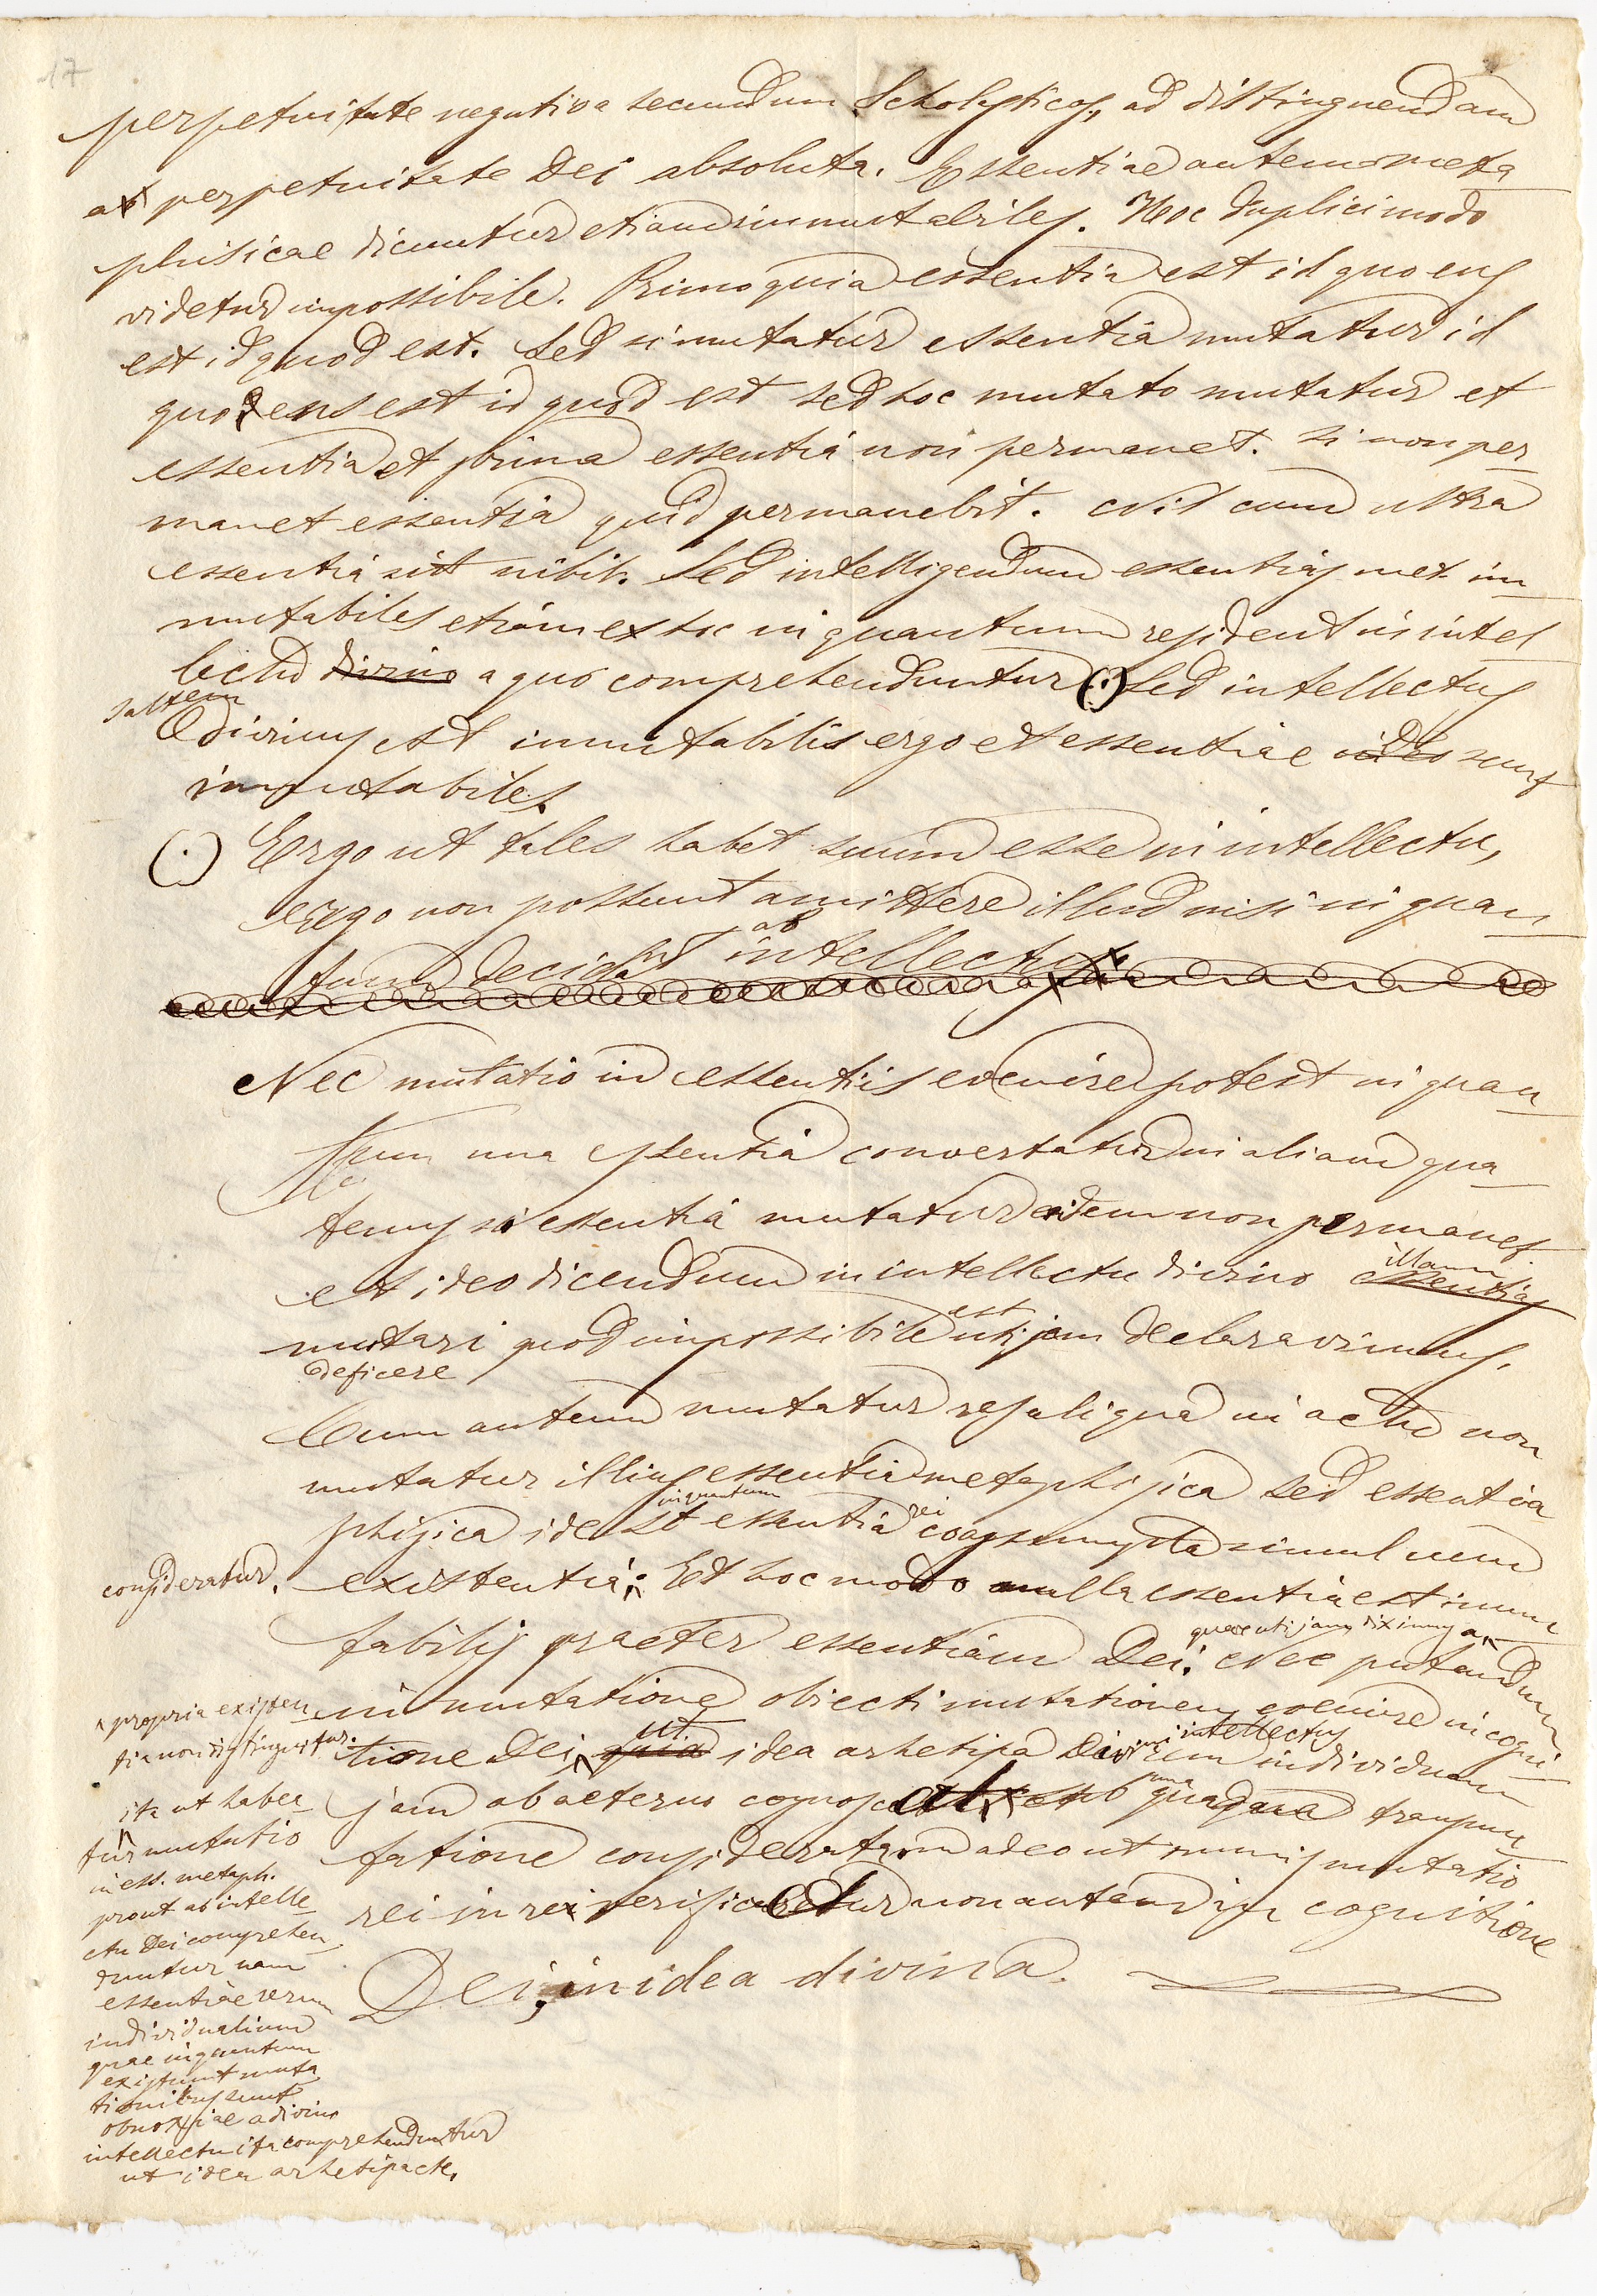 17
perpetuitate negativa secundum Scholasticos, ad distinguendam
a perpetuitate Dei absoluta. Essentiae autem meta
phisicae dicuntur etiam immutabiles. Hoc duplici modo
videtur impossibile. Primo quia essentia est id quo ens
est id quod est. Sed si mutatur essentia mutatur id
quod ens est id quod est sed hoc mutato mutatur et
essentia et prima essentia non permanet. Si non per
manet essentia quid permanebit. Nil cum ultra
essentia sit nihil. Sed intelligendum essentias met. im
mutabiles etiam ex hoc in quantum resident in intel
lectu divino a quo comprehenduntur (.) Sed intellectus
saltem
divinus est immutabilis ergo et essentiae ideo sunt
immutabiles.
(.) Ergo ut tales habet suum esse in intellectu,
ergo non possunt amittere illud nisi in quan
tum decidant ab intellectu.
Nec mutatio in essentiis evenire potest in quan
tum una essentia convertatur in aliam qua
tenus si essentia mutatur eidem non permanet
illam
et ideo dicendum in intellectu divino essentias
est
mutari quod impossibile uti jam declaravimus.
deficere
Cum autem mutatur res aliqua in actu non
mutatur illius essentia metaphisica sed essentia
inquantum rei
phisica idest essentia coassumpta simul cum
consideratur.
existentia. Et hoc modo nulla essentia est immu
quae uti jam diximus a
tabilis praeter essentiam Dei. Nec putandum
propria existen
tia non distinguitur.
in mutatione obiecti mutationem evenire in cogni
ut intellectus
tione Dei, quia idea arhetipa Divini rem individuam
una
jam ab aeterno cognoscat quaqua transmu
tatione consideratam adeo ut omnis mutatio
rei in re verificetur non autem in cognitione
Dei, in idea divina.
ita ut habea
tur mutatio
in ess. metaph.
prout ab intelle
ctu Dei comprehen
duntur nam
essentiae rerum
individualium
quae inquantum
existunt muta
tionibus sunt
obnoxiae a divino
intellectu ita comprehenduntur
ut idea arhetipa